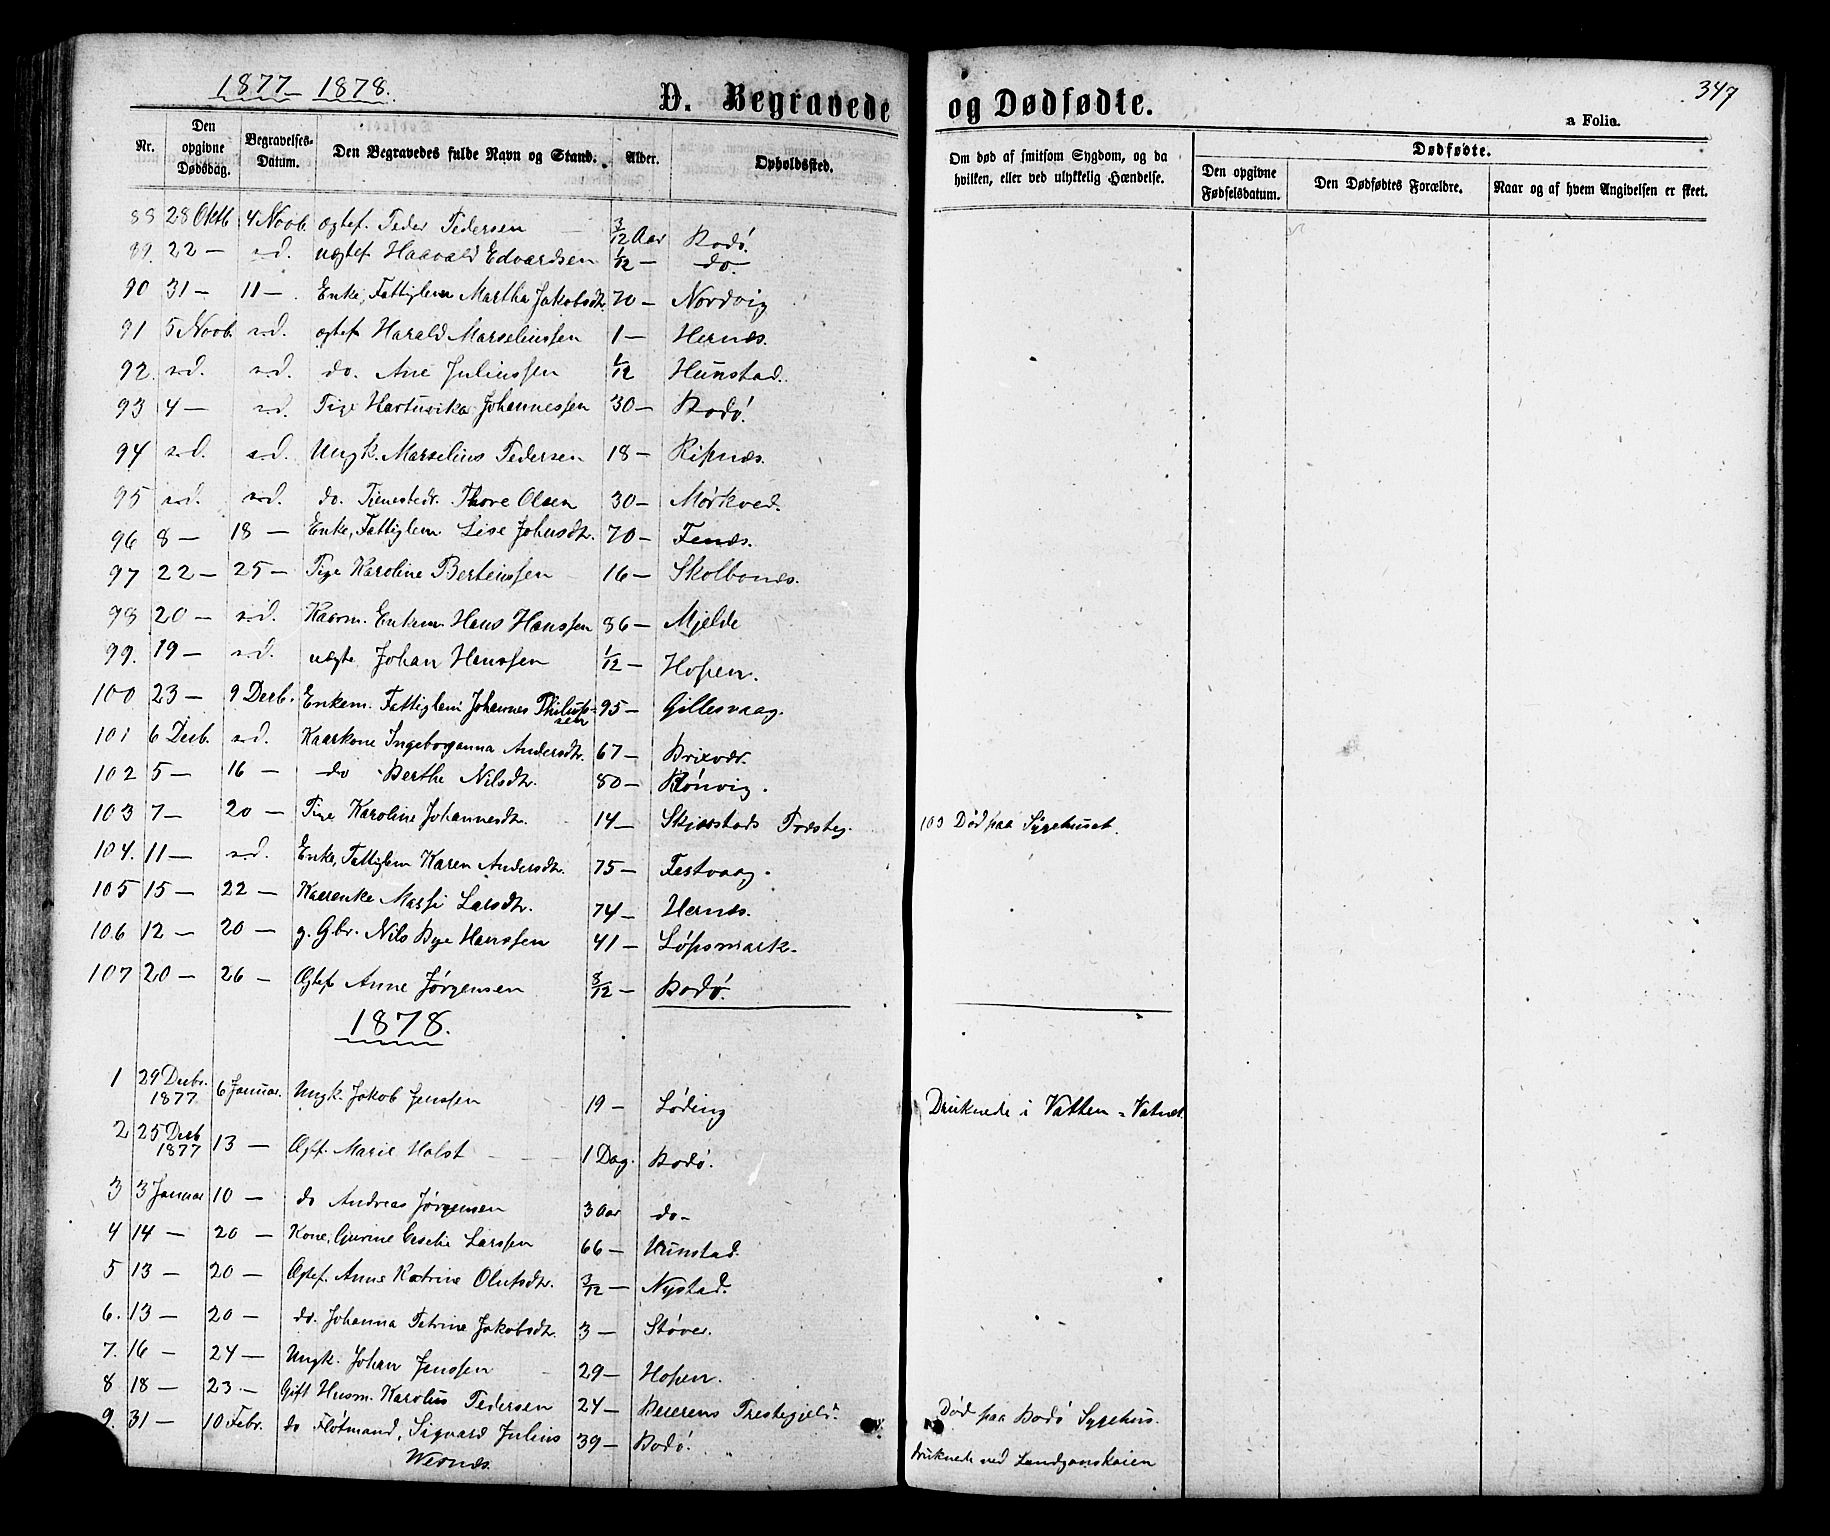 1877 - 1878.
D. Begravede og Dødfødte.
347
a Folio.
Nr. | Den opgivne Dødsdag. | Begravelses-Datum. | Den Begravedes fulde Navn og Stand. | Alder. | Opholdssted.
Om død af smitsom Sygdom, og da hvilken, eller ved ulykkelig Hændelse. | Dødfødte. | Den opgivne Fødselsdatum. | Den Dødfødtes Forældre. | Naar og af hvem Angivelsen er skeet.
88 28 Oktb 4 Novb. ægtef. Peder Pedersen 3/12 Aar Bodø.
89. 22 — s.d. uægtef Haavald Edvardsen 1/12 — do.
90 31 — 11 — Enke, Fattiglem Martha Jakobsdtr. 70 — Nordvig
91 5 Novb. s.d. ægtef Harald Marseliussen 1 — Hernæs.
92. s.d. s.d. do. Ane Juliussen 1/12 Hunstad.
93 4 — s.d. Pige Hartuvika Johannessen 30 — Bodø.
94 s.d. s.d. Ungk. Marselius Pedersen 18 — Ripnæs.
95 s.d. s.d. do. Tjenestedr. Thore Olsen 30 — Mørkved.
96 8 — 18 — Enke, Fattiglem Lise Johnsdtr. 70 — Fenæs.
97 22 — 25 — Pige Karoline Berteussen 16 — Skolbones.
98 20 — s.d. Kaarm. Enkem. Hans Hanssen 86 — Mjelde
99. 19 — s.d. uægte Johan Hanssen 1/12 — Hopen.
100 23 — 9 Decb. Enkem. Fattiglem Johannes Philipssen 95 — Gillesvaag.
101 6 Decb. s.d. Kaarkone Ingeborganna Andersdtr. 67 — Brixvær.
102 5 — 16 — do Berthe Nilsdtr. 80 — Rønvig.
103 7 — 20 — Pige Karoline Johannesdtr. 14 — Skjærstads Præsteg. 103 Død paa Sygehuset.
104. 11 — s.d. Enke, Fattiglem Karen Andersdtr. 75 — Festvaag.
105 15 — 22 — Kaarenke Marsi Larsdtr. 74 — Hernæs.
106 12 — 20 — g. Gbr. Nils Bye Hanssen 41 — Løpsmark.
107 20 — 26 — Ægtef Anne Jørgensen 8/12 — Bodø.
1878.
1 29 Decbr. 1877 6 Januar. Ungk. Jakob Jenssen 19 — Løding Druknede i Vatten = Vatnet
2 25 Decb 1877 13 — Ægtef. Marie Holst 1 Dag. Bodø.
3 3 Januar 10 — do Andreas Jørgensen 3 Aar do —
4 14 — 20 — Kone, Gurine Larssen 66 — Hunstad.
5 13 — 20 — Ægtef. Anne Katrine Olufsdtr. 3/12 — Nystad.
6. 13 — 20 — do. Johanna Petrine Jakobsdtr. 3 — Støver.
7. 16 — 24 — Ungk. Johan Jenssen 29 — Hopen.
8 18 — 23. — Gift Husm. Karolius Pedersen 24 — Beierens Prestegjeld. Død paa Bodø Sygehus.
9. 31 — 10 Febr. do Fløtmand, Sigvard Julius Wernæs. 39 — Bodø. Druknede ved Landgangskaien